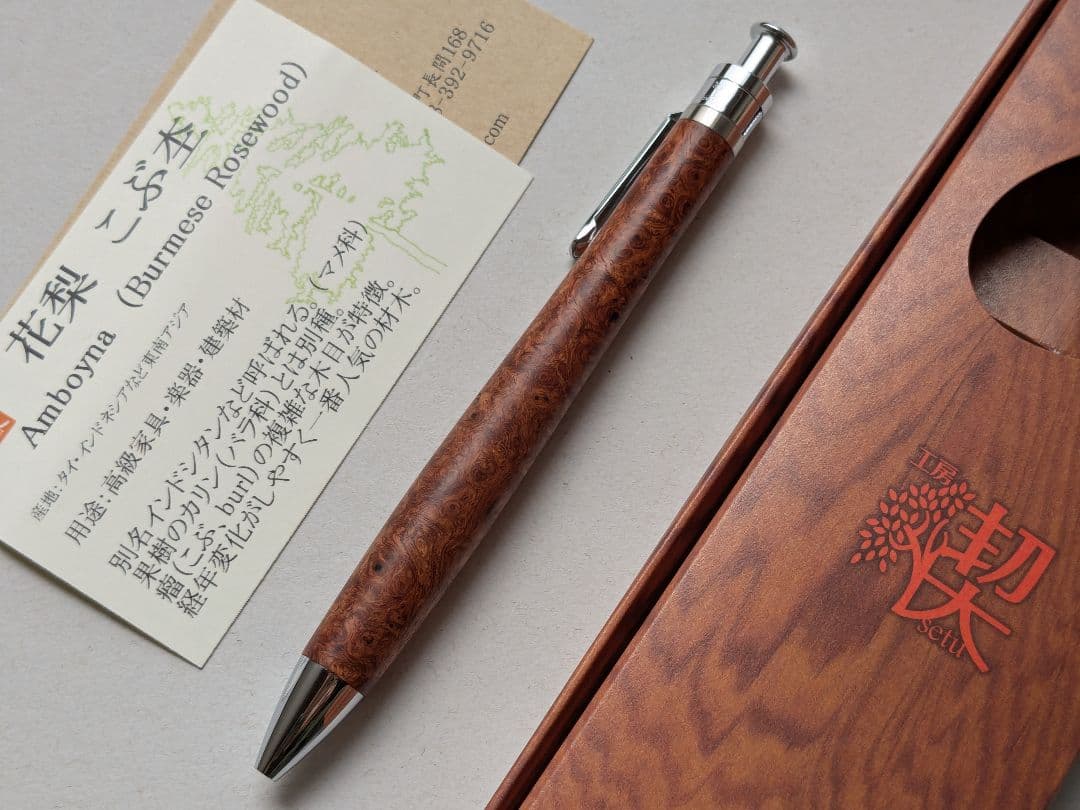 花梨 こぶ杢
Amboyna (Burmese Rosewood)
産地:タイ・インドネシアなど東南アジア
用途:高級家具・楽器・建築材
別名インドシタンなど呼ばれる。(マメ科)
果樹のカリン(バラ科)とは別種。
瘤(こぶ、burl)の複雑な木目が特徴。
経年変化がしやすく一番人気の材木。
町長間168
3-392-9716
.com
工房
楔
setu